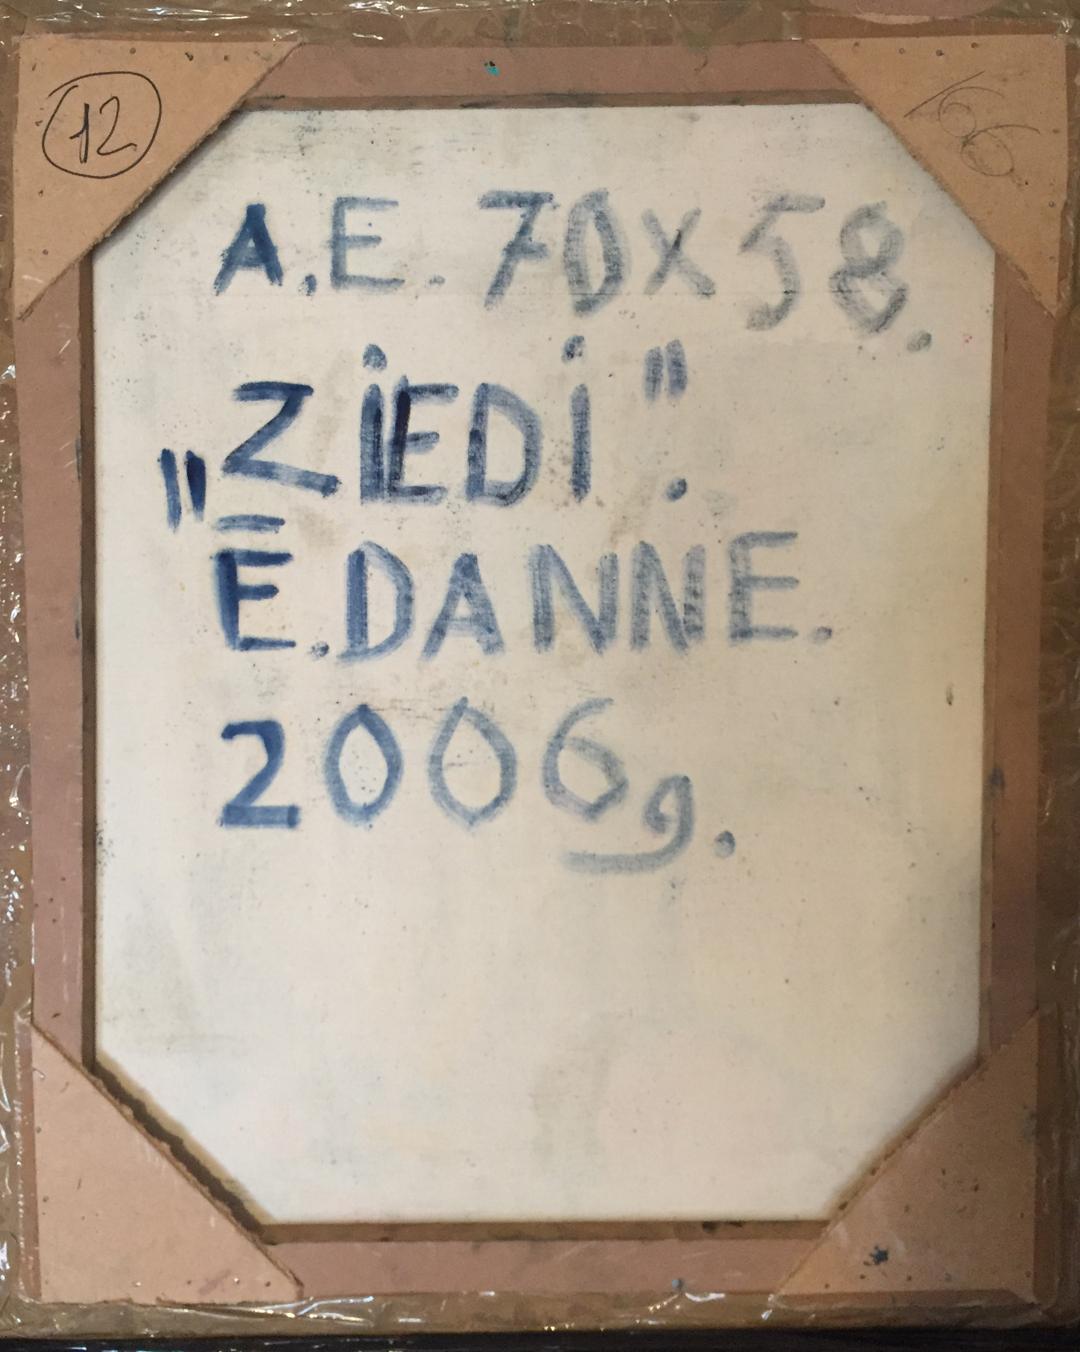 12
66
A.E. 70X58.
„ZIEDI".
Ē.DANNE.
2006g.